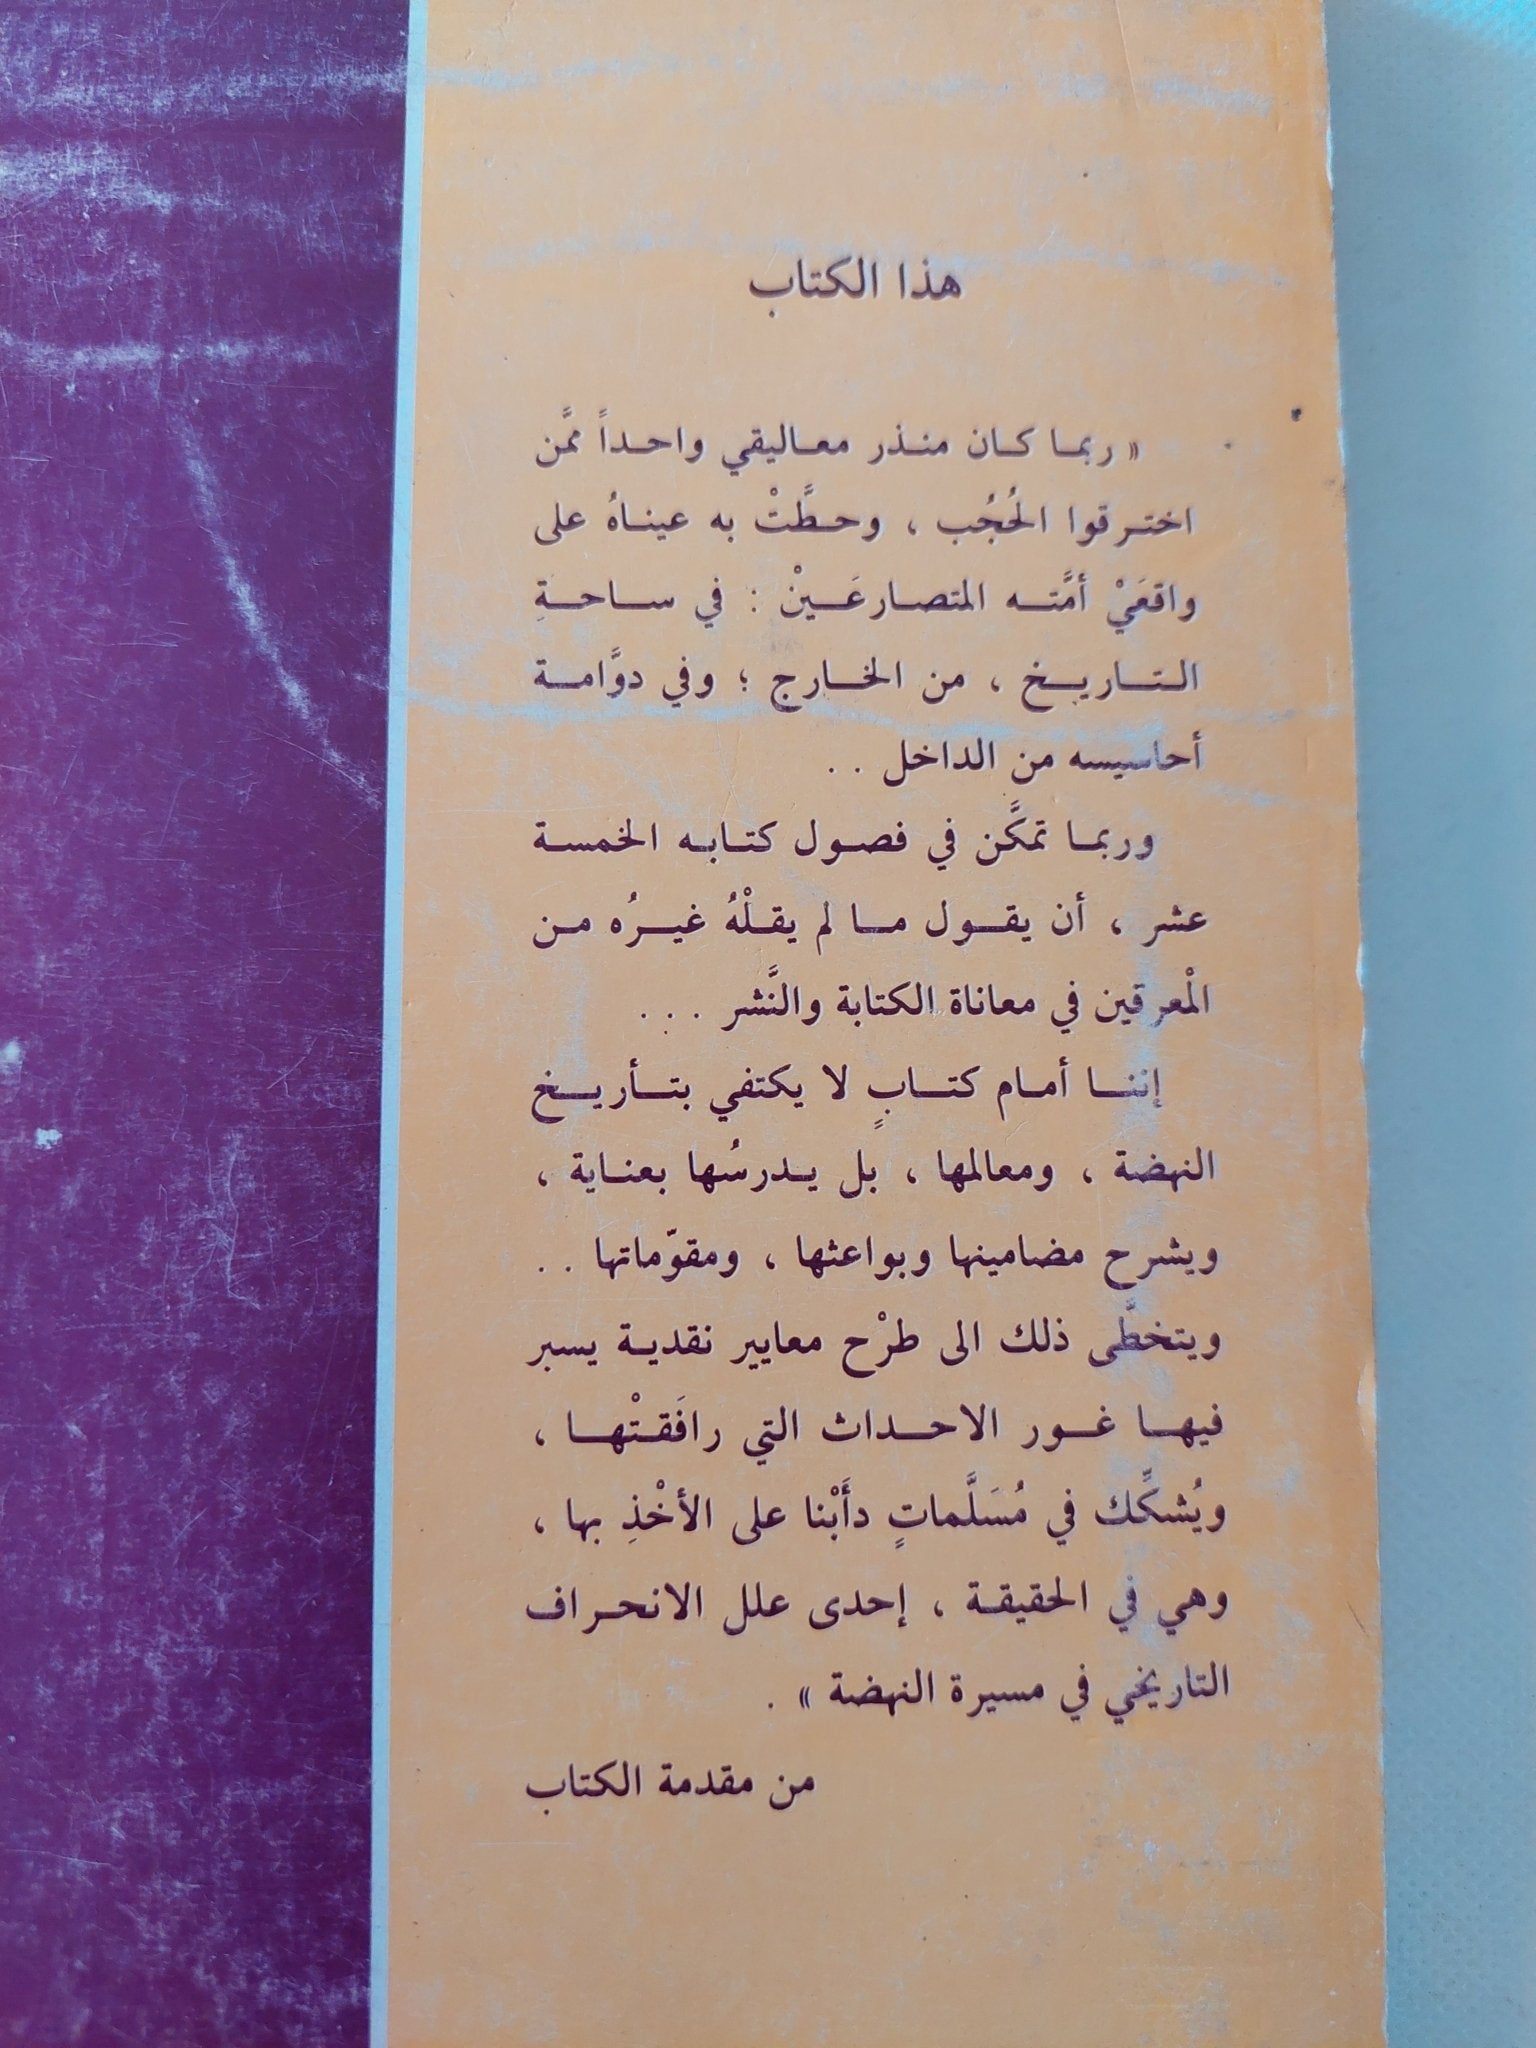 هذا الكتاب
« ربما كان منذر معاليقي واحداً ممَّن
اخترقوا الحُجُب ، وحطَّتْ به عيناهُ على
واقعَيْ أمَّته المتصارعَيْن : في ساحةِ
التاريخ ، من الخارج ؛ وفي دوَّامة
أحاسيسه من الداخل . .
وربما تمكَّن في فصول كتابه الخمسة
عشر ، أن يقول ما لم يقلْهُ غيرُه من
الْمعرقين في معاناة الكتابة والنَّشر . . .
إننا أمام كتابٍ لا يكتفي بتأريخ
النهضة ، ومعالمها ، بل يدرسُها بعناية ،
ويشرح مضامينها وبواعثها ، ومقوّماتها . .
ويتخطَّى ذلك الى طرْح معايير نقدية يسبر
فيها غور الاحداث التي رافَقتْها ،
ويُشكِّك في مُسَلَّماتٍ دأَبْنا على الأخْذِ بها ،
وهي في الحقيقة ، إحدى علل الانحراف
التاريخي في مسيرة النهضة » .
من مقدمة الكتاب